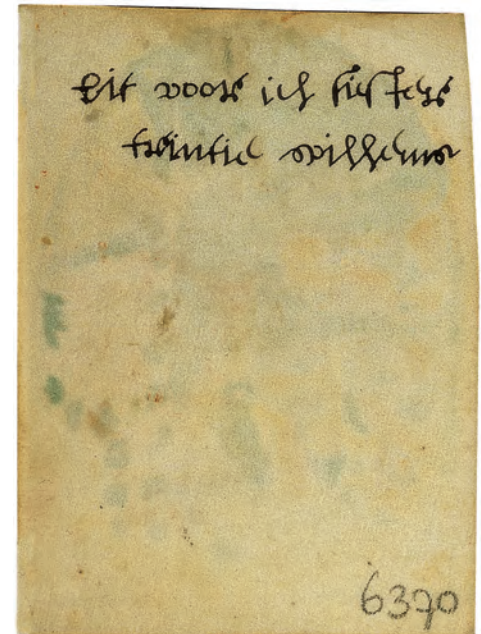 bit voor ich suster
trintie willems
6370